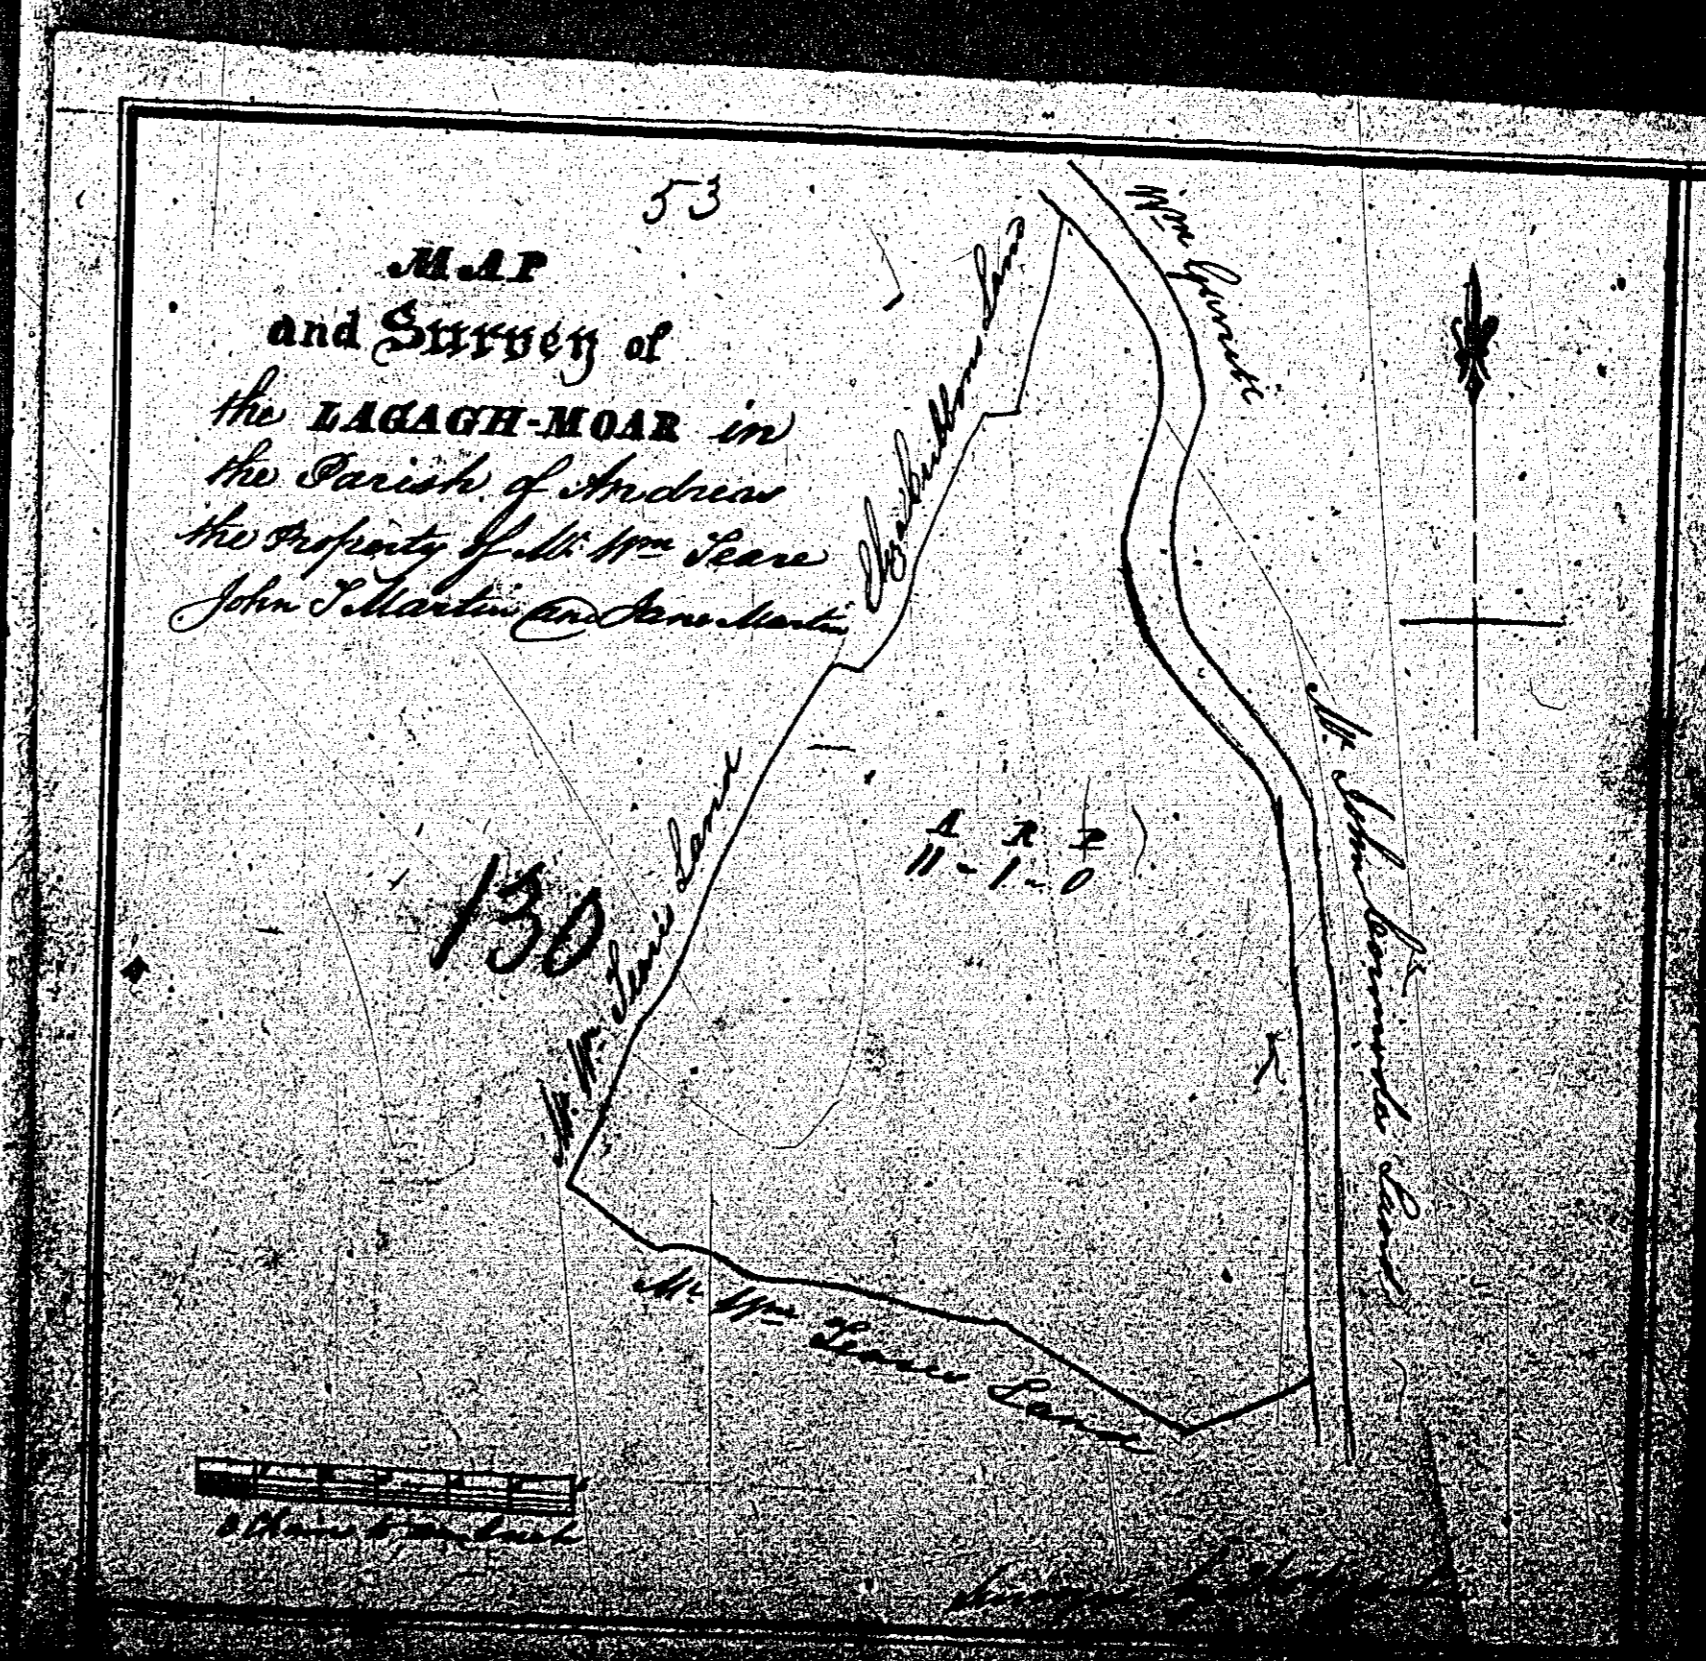 53
MAP
and Survey of
the LAGAGH-MOAR in
the Parish of Andreas
the Property of Mr. Wm Teare
John T Martin and Jane Martin
Land
Wm
Mr. John Land
A R P
11 - 1 - 0
130
Mr. Wm. Teare's Land
Mr. Wm Teare's Land
Chains to an Inch